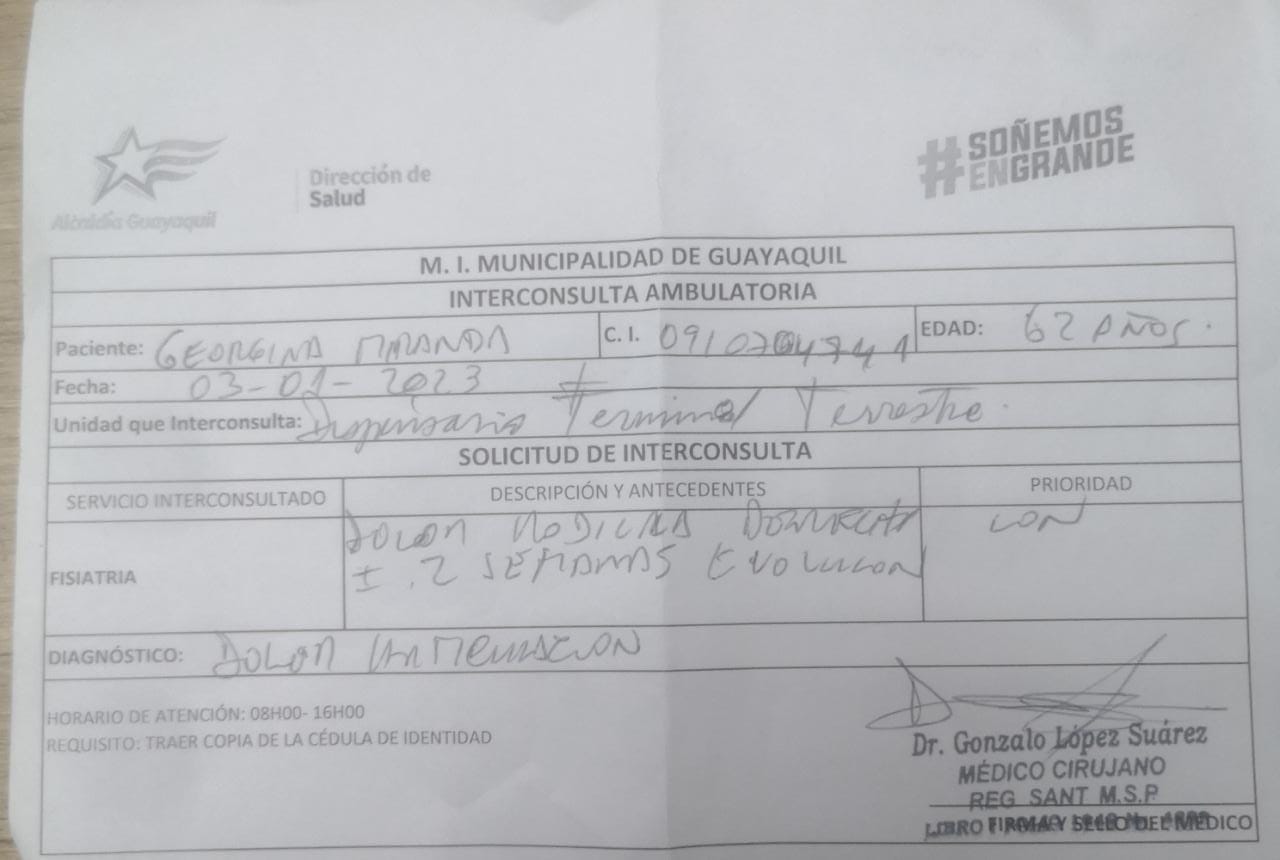 Alcaldía Guayaquil
Dirección de
Salud
#SOÑEMOS
ENGRANDE
M. I. MUNICIPALIDAD DE GUAYAQUIL
INTERCONSULTA AMBULATORIA
Paciente: GEORGINA MIRANDA C. I. EDAD: 62 AÑOS.
Fecha: 03-01-2023
Unidad que Interconsulta: Dispensario Terminal Terrestre.
SOLICITUD DE INTERCONSULTA
SERVICIO INTERCONSULTADO DESCRIPCIÓN Y ANTECEDENTES PRIORIDAD
DOLOR RODILLA DERECHA CON
FISIATRIA ± 2 SEMANAS EVOLUCION
DIAGNÓSTICO: DOLOR
HORARIO DE ATENCIÓN: 08H00- 16H00
REQUISITO: TRAER COPIA DE LA CÉDULA DE IDENTIDAD
Dr. Gonzalo López Suárez
MÉDICO CIRUJANO
REG SANT M.S.P
LIBRO FIRMA Y SELLO DEL MEDICO